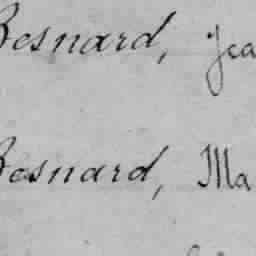 Besnard, Jea
Besnard, Ma